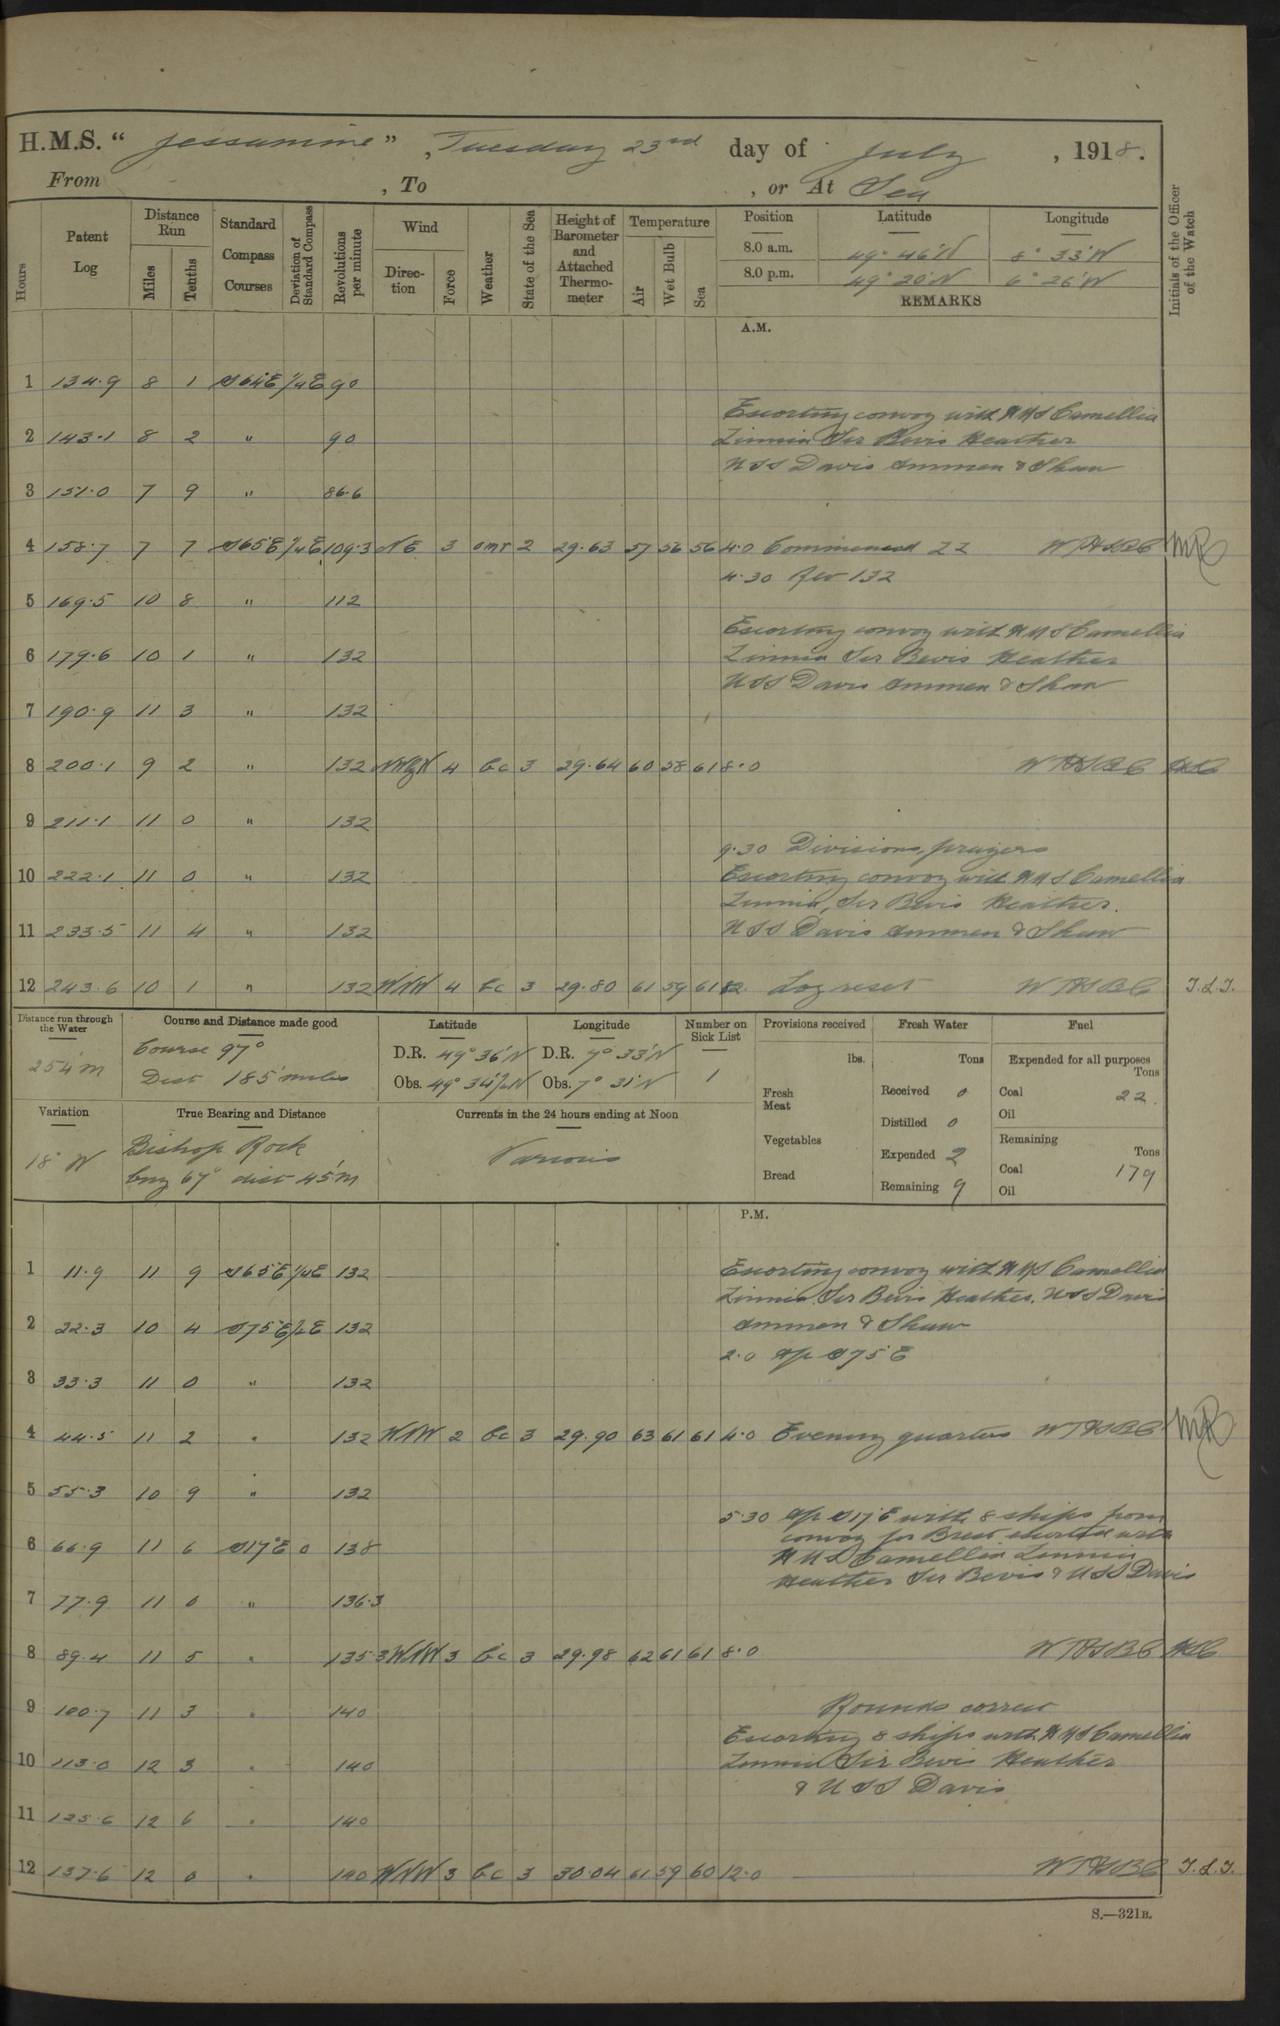 H.M.S. “ Jessamine ” , Tuesday 23rd day of July , 1918.
From , To , or At Sea
Hours
Patent Log
Distance Run
Miles
Tenths
Standard Compass Courses
Deviation of Standard Compass
Revolutions per minute
Wind
Direction
Force
Weather
State of the Sea
Height of Barometer and Attached Thermometer
Temperature
Air
Wet Bulb
Sea
Position Latitude Longitude
8.0 a.m. 49° 46'N 8° 33'W
8.0 p.m. 49° 20'N 6° 26'W
REMARKS
Initials of the Officer of the Watch
A.M.
1 134.9 8 1 S64E 1/4E 90
Escorting convoy with HMS Camellia
2 143.1 8 2 " 90 Zinnia Sir Bevis Heather
USS Davis Ammen & Shaw
3 151.0 7 9 " 86.6
4 158.7 7 7 S65E 1/4E 109.3 NE 3 omr 2 29.63 57 56 56 4.0 Commenced ZZ WTHSBC
4.30 Rev 132
5 169.5 10 8 " 112
Escorting convoy with HMS Camellia
6 179.6 10 1 " 132 Zinnia Sir Bevis Heather
USS Davis Ammen & Shaw
7 190.9 11 3 " 132
8 200.1 9 2 " 132 NWbN 4 bc 3 29.64 60 58 61 8.0 WTHSBC
9 211.1 11 0 " 132
9.30 Divisions, prayers
10 222.1 11 0 " 132 Escorting convoy with HMS Camellia
Zinnia, Sir Bevis Heather.
11 233.5 11 4 " 132 USS Davis Ammen & Shaw
12 243.6 10 1 " 132 WNW 4 bc 3 29.80 61 59 61 12. Log reset WTHSBC J.L.J.
Distance run through the Water
254'm
Course and Distance made good
Course 97°
Dist 185 miles
Latitude
D.R. 49° 36'N
Obs. 49° 34'1/2N
Longitude
D.R. 7° 33'N
Obs. 7° 31'N
Number on Sick List
1
Provisions received
lbs.
Fresh Meat
Vegetables
Bread
Fresh Water
Tons
Received 0
Distilled 0
Expended 2
Remaining 9
Fuel
Expended for all purposes
Tons
Coal 22.
Oil
Remaining
Tons
Coal 179
Oil
Variation
18° W
True Bearing and Distance
Bishop Rock
brg 67° dist 45'm
Currents in the 24 hours ending at Noon
Various
P.M.
1 11.9 11 9 S65E 1/4E 132 Escorting convoy with HMS Camellia
Zinnia. Sir Bevis Heather. USS Davis
2 22.3 10 4 S75E 1/2E 132 Ammen & Shaw
2.0 A/c S75E
3 33.3 11 0 " 132
4 44.5 11 2 " 132 WNW 2 bc 3 29.90 63 61 61 4.0 Evening quarters WTHSBC
5 55.3 10 9 " 132
5.30 A/c S17°E with 8 ships from
convoy for Brest escorted with
6 66.9 11 6 S17°E 0 138 HMS Camellia Zinnia
Heather Sir Bevis & USS Davis
7 77.9 11 0 " 136.3
8 89.4 11 5 " 135.3 WNW 3 bc 3 29.98 62 61 61 8.0 WTHSBC
9 100.7 11 3 " 140 Rounds correct
Escorting 8 ships with HMS Camellia
10 113.0 12 3 " 140 Zinnia Sir Bevis Heather
& USS Davis
11 125.6 12 6 " 140
12 137.6 12 0 " 140 WNW 3 bc 3 30.04 61 59 60 12.0 WTHSBC J.L.J.
S.—321B.